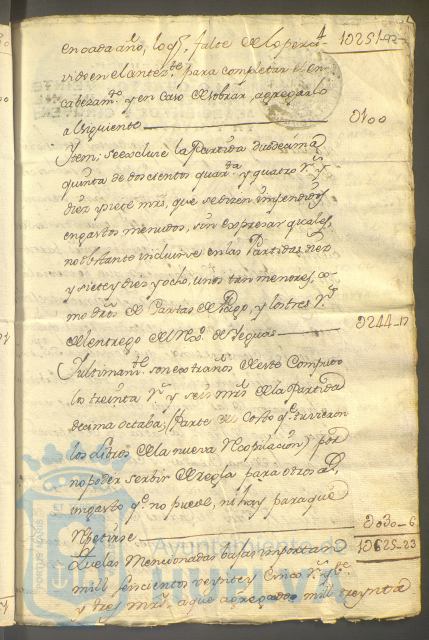 en cada año, lo q.e falte de lo perci- 1 0251-
vido en el anter.te para completar el en-
cabezam.to y en caso de sobrar, agregarlo
al siguiente 0100
Item; se excluie la Partida duodecima
quinta de doscientos quar.ta y quatro r.s y
diez y siete mrs, que se dizen impendidos
en gastos menudos, sin expresar quales,
no obstante incluirse en las Partidas diez
y siete y diez y ocho, unos tan menores, co-
mo dros de Cartas de Pago, y los tres r.s
del entrego de de Yeguas 0244-17
Y ultimam.te son extraños de este Computo
los treinta r.s y seis mrs de la Partida
decima octaba; (Parte de costo q.e tuvieron
los Libros de la nueva Recopilacion) por
no poder serbir de regla para otros a.s
un gasto q.e no puede, ni hay para que
repetirse 0030-6
Que las mencionadas bajas importan 1 0625-23
mill seiscientos veynte y cinco r.s
y tres mrs, a que agregados mill treynta
Ayuntamiento de